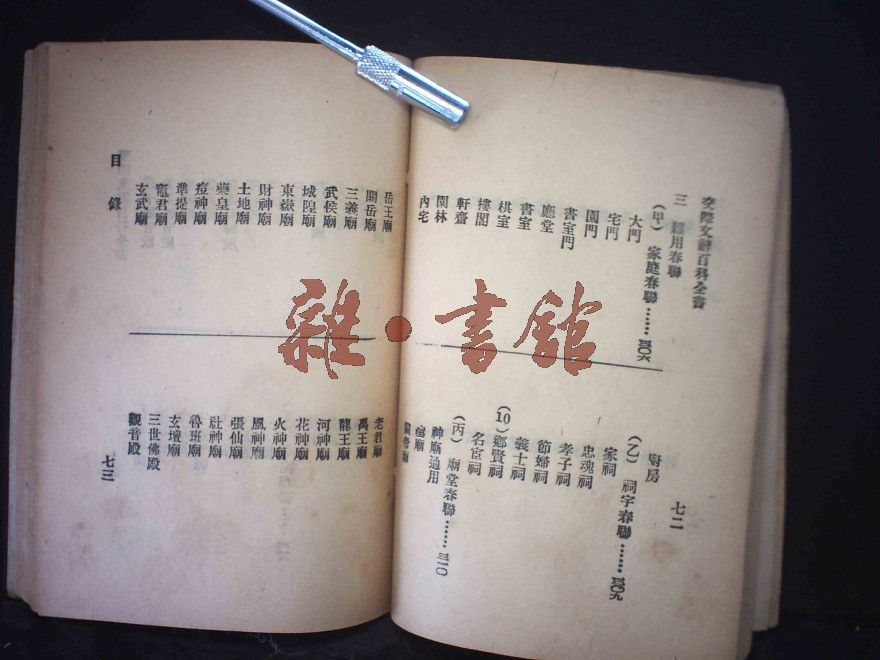 交際文辭百科全書
三 雜用春聯
(甲)家庭春聯……三〇六
大門
宅門
園門
書室門
廳堂
書室
棋室
樓閣
軒齋
園林
內宅
廚房
七二
(乙)祠宇春聯……三〇九
家祠
忠魂祠
孝子祠
節婦祠
義士祠
(10)鄉賢祠
名宦祠
(丙)廟堂春聯……三一〇
神廟通用
岳王廟
關岳廟
三義廟
武侯廟
城隍廟
東嶽廟
財神廟
土地廟
藥皇廟
痘神廟
準提廟
竈君廟
玄武廟
目錄
老君廟
禹王廟
龍王廟
河神廟
花神廟
火神廟
風神廟
張仙廟
社神廟
魯班廟
玄壇廟
三世佛殿
觀音殿
七三
雜·書館